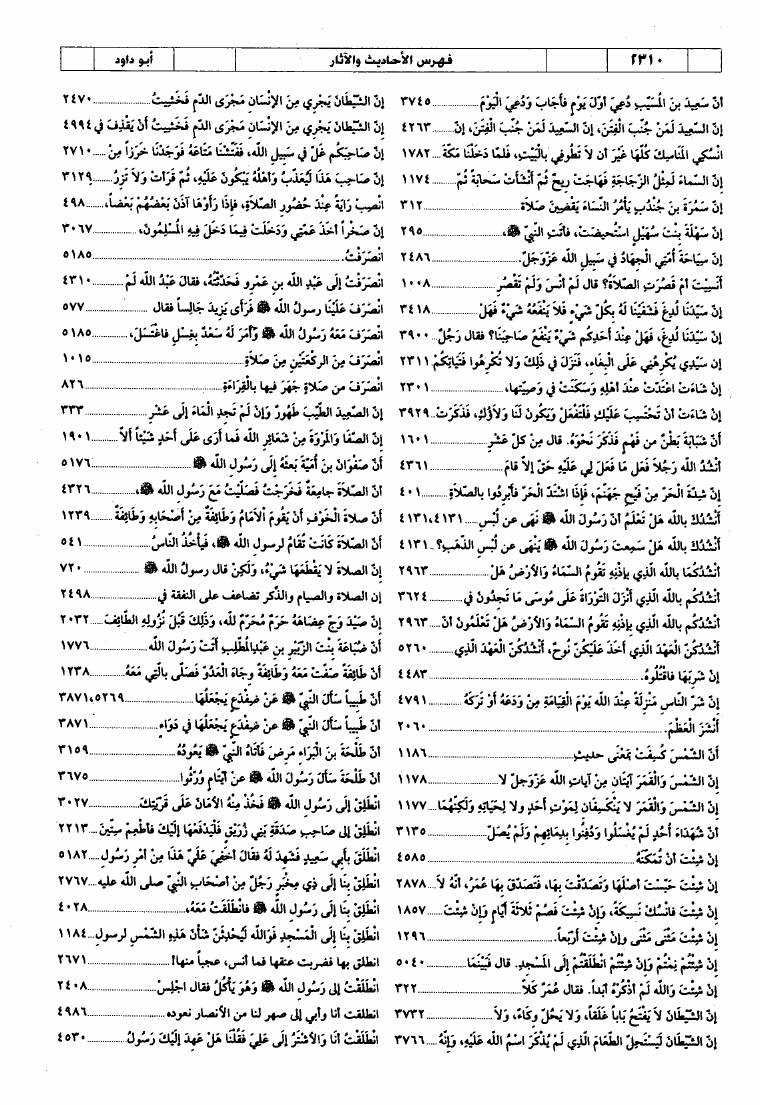 ٢٣١٠ فهرس الأحاديث والآثار أبو داود
أنّ سَعِيدَ بنَ المُسَيِّبِ دُعِيَ أوَّلَ يَوْمٍ فَأَجَابَ وَدُعِيَ الْيَوْمَ .......... ٣٧٤٥
إنّ السَّعِيدَ لَمَنْ جُنِّبَ الْفِتَنَ، إنّ السَّعِيدَ لَمَنْ جُنِّبَ الْفِتَنَ، إنّ .......... ٤٢٦٣
انْسُكِي المَناسِكَ كُلَّهَا غَيْرَ أن لا تَطُوفي بالْبَيْتِ، فَلمَّا دَخَلْنَا مَكّةَ .......... ١٧٨٢
إنّ السَّماءَ لَمِثْلُ الزُّجَاجَةِ فَهَاجَتْ رِيحٌ ثُمّ أنْشَأتْ سَحَابَةً ثُمّ .......... ١١٧٤
إنّ سَمُرَةَ بنَ جُنْدُبٍ يأمُرُ النِّسَاءَ يَقْضِينَ صَلَاةَ .......... ٣١٢
إنّ سَهْلَةَ بِنْتَ سُهَيْلٍ اسْتُحِيضَتْ، فأتَتِ النّبيَّ ﷺ، .......... ٢٩٥
إنّ سِيَاحَةَ أُمَّتِي الْجِهَادُ في سَبِيلِ الله عَزّوَجَلّ .......... ٢٤٨٦
أنَسِيتَ أمْ قَصُرَتِ الصّلاةُ؟ قال لَمْ أنْسَ وَلَمْ تَقْصُرِ .......... ١٠٠٨
إنّ سَيِّدَنَا لُدِغَ فَشَفَيْنَا لَهُ بِكُلِّ شَيْءٍ فَلاَ يَنْفَعُهُ شَيْءٌ فَهَلْ .......... ٣٤١٨
إنّ سَيِّدَنَا لُدِغَ، فَهَلْ عِنْدَ أحَدِكُم شَيْءٌ يَنْفَعُ صَاحِبَنَا؟ فقال رَجُلٌ .......... ٣٩٠٠
إن سَيّدِي يُكْرِهُنِي عَلَى الْبِغَاءِ، فَنَزَلَ في ذَلِكَ وَلا تُكْرِهُوا فَتَيَاتِكُمْ ٢٣١١
إنْ شَاءَتْ اعْتَدّتْ عِنْدَ أهْلِهِ وَسَكَنَتْ في وَصِيّتِها، .......... ٢٣٠١
إنْ شَاءَتْ أنْ تَحْتَسِبَ عَلَيْكِ فَلْتَفْعَلْ وَيَكُونَ لَنَا وَلاَؤُكِ، فَذَكَرَتْ .. ٣٩٢٩
أنّ شَبَابَةَ بَطْنٌ من فَهْمٍ فَذَكَرَ نَحْوَهُ. قال مِنْ كلّ عَشْرِ .......... ١٦٠١
أنْشُدُ الله رَجُلاً فَعَلَ مَا فَعَلَ لِي عَلَيْهِ حَقّ إلاّ قامَ .......... ٤٣٦١
إنّ شِدّةَ الْحَرّ مِنْ فَيْحِ جَهَنّمَ، فَإذَا اشْتَدّ الْحَرّ فأبْرِدُوا بالصّلاةِ .......... ٤٠١
أنْشُدُكَ بالله هَلْ تَعْلَمُ أنّ رَسُولَ الله ﷺ نَهَى عن لُبْسِ .... ٤١٣١،٤١٣١
أنْشُدُكَ بالله هَلْ سَمِعتَ رَسُولَ الله ﷺ يَنْهَى عن لُبْسِ الذّهَبِ؟ .. ٤١٣١
أنْشُدُكُمَا بالله الّذي بِإذْنِهِ تَقُومُ السّمَاءُ وَالأرْضُ هَلْ .......... ٢٩٦٣
أنْشُدُكُم بالله الّذِي أنْزَلَ التّوْرَاةَ عَلَى مُوسَى مَا تَجِدُونَ في .......... ٣٦٢٤
أنْشُدُكُم بالله الّذِي بِإذْنِهِ تَقُومُ السّمَاءُ وَالأرْضُ هَلْ تَعْلَمُونَ أنّ .... ٢٩٦٣
أنْشُدُكُنّ الْعَهْدَ الّذِي أخَذَ عَلَيْكُنّ نُوحٌ، أنْشُدُكُنّ الْعَهْدَ الّذِي .......... ٥٢٦٠
إنْ شَرِبَهَا فاقْتُلُوهُ. .......... ٤٤٨٣
إنّ شَرّ النّاسِ مَنْزِلَةً عِنْدَ الله يَوْمَ القِيَامَةِ مِنْ وَدَعَهُ أوْ تَرَكَهُ .......... ٤٧٩١
أنْشَزَ الْعَظْمَ. .......... ٢٠٦٠
أنّ الشّمْسَ كُسِفَتْ بِمَعْنَى حديثِ .......... ١١٨٦
إنّ الشّمْسَ وَالْقَمَرَ آيَتَانِ مِنْ آيَاتِ الله عَزّوَجَلّ لا .......... ١١٧٨
إنّ الشّمْسَ وَالْقَمَرَ لا يَنْكَسِفَانِ لِمَوْتِ أحَدٍ ولا لِحَيَاتِهِ وَلَكِنّهُمَا .... ١١٧٧
أنّ شُهَدَاءَ أُحُدٍ لَمْ يُغْسَلُوا وَدُفِنُوا بِدِمَائِهِمْ وَلَمْ يُصَلّ .......... ٣١٣٥
إنْ شِئْتَ أنْ تُمَكّنَهُ .......... ٤٥٨٥
إنْ شِئْتَ حَبَسْتَ أصْلَهَا وَتَصَدّقْتَ بِهَا، فَتَصَدّقَ بِهَا عُمَرُ، أنّهُ لاَ ... ٢٨٧٨
إنْ شِئْتَ فانْسُكْ نَسِيكَةً، وَإنْ شِئْتَ فَصُمْ ثَلاَثَةَ أيّامٍ وَإنْ شِئْتَ .......... ١٨٥٧
إنْ شِئْتَ مَثْنَى مَثْنَى وإنْ شِئْتَ أرْبَعاً. .......... ١٢٩٦
إنْ شِئْتُمْ نِمْتُمْ وَإنْ شِئْتُمْ انْطَلَقْتُمْ إلَى المَسْجِدِ. قال فَبَيْنَمَا .......... ٥٠٤٠
إنْ شِئْتَ وَالله لَمْ أذْكُرْهُ أبَداً. فقال عُمَرُ كَلاّ .......... ٣٢٢
إنّ الشّيْطَانَ لاَ يَفْتَحُ بَاباً غَلَقاً، وَلا يَحُلّ وِكَاءً، وَلاَ .......... ٣٧٣٢
إنّ الشّيْطَانَ لَيَسْتَحِلّ الطّعَامَ الّذِي لَمْ يُذْكَرْ اسْمُ الله عَلَيْهِ، وَإنّهُ .... ٣٧٦٦
إنّ الشّيْطَانَ يَجْرِي مِنَ الإنْسَانِ مَجْرَى الدّمِ فَخَشِيتُ .......... ٢٤٧٠
إنّ الشّيْطَانَ يَجْرِي مِنَ الإنْسَانِ مَجْرَى الدّمِ فَخَشِيتُ أنْ يَقْذِفَ في ٤٩٩٤
إنّ صَاحِبَكُم غَلّ في سَبِيلِ الله، فَفَتّشْنَا مَتَاعَهُ فَوَجَدْنَا خَرَزاً مِنْ .... ٢٧١٠
إنّ صَاحِبَ هَذَا لَيُعَذّبُ وَأهْلُهُ يَبْكُونَ عَلَيْهِ، ثُمّ قَرَأتْ وَلاَ تَزِرُ .......... ٣١٢٩
انْصِبْ رَايَةً عِنْدَ حُضُورِ الصّلاَةِ، فإذَا رَأوْهَا آذَنَ بَعْضُهُمْ بَعْضاً، .......... ٤٩٨
إنّ صَخْراً أخَذَ عَمّتِي وَدَخَلَتْ فِيمَا دَخَلَ فِيهِ الْمسْلِمُونَ، .......... ٣٠٦٧
انْصَرَفْتُ. .......... ٥١٨٥
انْصَرَفْتُ إلَى عَبْدِ الله بنِ عَمْرٍو فَحَدّثْتُهُ، فقال عَبْدُ الله لَمْ .......... ٤٣١٠
انْصَرَفَ عَلَيْنَا رسولُ الله ﷺ فَرَأى يَزِيدَ جَالِساً فقال .......... ٥٧٧
انْصَرَفَ مَعَهُ رَسُولُ الله ﷺ وَأمَرَ لَهُ سَعْدٌ بِغِسْلٍ فاغْتَسَلَ، .......... ٥١٨٥
انْصَرَفَ مِنَ الرّكْعَتَيْنِ مِنَ صَلاَةِ .......... ١٠١٥
انْصَرَفَ من صَلاَةٍ جَهَرَ فيها بالْقِرَاءَةِ .......... ٨٢٦
إنّ الصّعِيدَ الطّيّبَ طَهُورٌ وَإنْ لَمْ تَجِدِ الْمَاءَ إلَى عَشْرِ .......... ٣٣٣
إنّ الصّفَا وَالمَرْوَةَ مِنْ شَعَائِرِ الله فَما أرَى عَلَى أحَدٍ شَيْئاً ألاّ .......... ١٩٠١
أنّ صَفْوَانَ بنَ أُمَيّةَ بَعَثَهُ إلَى رَسُولِ الله ﷺ .......... ٥١٧٦
أنّ الصّلاَةَ جامِعَةٌ فَخَرَجْتُ فَصَلّيْتُ مَعَ رَسُولِ الله ﷺ، .......... ٤٣٢٦
أنّ صلاةَ الْخَوْفِ أنْ يَقُومَ الإمَامُ وَطَائِفَةٌ مِنْ أصْحَابِهِ وَطَائِفَةٌ .......... ١٢٣٩
أنّ الصّلاَةَ كَانَتْ تُقَامُ لرسولِ الله ﷺ، فَيأْخُذُ النّاسُ .......... ٥٤١
إنّ الصلاةَ لا يَقْطَعُهَا شَيْءٌ، وَلَكِنْ قال رسولُ الله ﷺ .......... ٧٢٠
إن الصلاة والصيام والذّكر تضاعف على النفقة في .......... ٢٤٩٨
إنّ صَيْدَ وَجّ عِضَاهَهُ حَرَمٌ مُحَرّمٌ لله، وَذَلِكَ قَبْلَ نُزُولِهِ الطّائِفَ .... ٢٠٣٢
أنّ ضُبَاعَةَ بِنْتَ الزّبَيْرِ بنِ عَبْدِالمُطّلِبِ أتَتْ رَسُولَ الله .......... ١٧٧٦
أنّ طَائِفَةً صَفّتْ مَعَهُ وَطَائِفَةً وِجَاهَ الْعَدُوّ فَصَلّى بالّتِي مَعَهُ .......... ١٢٣٨
أنّ طَبِيباً سَألَ النّبيّ ﷺ عَنْ ضِفْدَعٍ يَجْعَلُهَا .......... ٣٨٧١،٥٢٦٩
أنّ طَبِيباً سَألَ النّبيّ ﷺ عن ضِفْدَعٍ يَجْعَلُهَا في دَوَاءٍ .......... ٣٨٧١
أنّ طَلْحَةَ بنَ الْبَرَاءِ مَرِضَ فَأتَاهُ النّبيّ ﷺ يَعُودُهُ .......... ٣١٥٩
أنّ طَلْحَةَ سَألَ رَسُولَ الله ﷺ عنْ أيْتَامٍ وَرِثُوا .......... ٣٦٧٥
انْطَلِقْ إلَى رَسُولِ الله ﷺ فَخُذْ مِنْهُ الأمَانَ عَلَى قَرْيَتِكَ .......... ٣٠٢٧
انْطَلِقْ إلى صَاحِبِ صَدَقَةِ بَنِي زُرَيْقٍ فَلْيَدْفَعْهَا إلَيْكَ فأطْعِمْ سِتّينَ ... ٢٢١٣
انْطَلَقَ بأبِي سَعِيدٍ فَشَهِدَ لَهُ فقال أخَفِيَ عَلَيّ هَذَا مِنْ أمْرِ رَسُولِ ... ٥١٨٢
انْطَلِقْ بِنَا إلَى ذِي مِخْبَرٍ رَجُلٌ مِنْ أصْحَابِ النّبيّ صلى الله عليه .... ٢٧٦٧
انْطَلِقْ بِنَا إلَى رَسُولِ الله ﷺ فانْطَلَقْتُ مَعَهُ، .......... ٤٠٢٨
انْطَلِقْ بِنَا إلَى المَسْجِدِ فَوَالله لَيُحْدِثَنّ شَأْنُ هَذِهِ الشّمْسِ لرسولِ .. ١١٨٤
انطلق بها فضربت عنقها فما أنس، عجباً منها! .......... ٢٦٧١
انْطَلَقْتُ إلى رَسُولِ الله ﷺ وَهُوَ يَأْكُلُ فقال اجْلِسْ .......... ٢٤٠٨
انطلقت أنا وأبي إلى صهر لنا من الأنصار نعوده .......... ٤٩٨٦
انْطَلَقْتُ أنَا وَالأشْتَرُ إلَى عَلِيّ فَقُلْنَا هَلْ عَهِدَ إلَيْكَ رَسُولُ .......... ٤٥٣٠